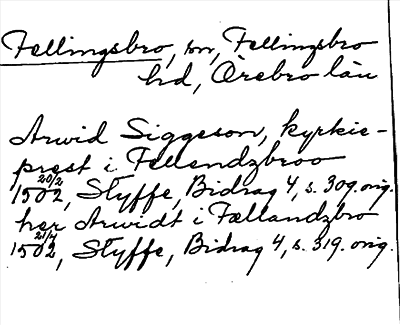 Fellingsbro, sn, Fellingsbro
hd, Örebro län
Arvid Siggeson, kyrkie-
prest i Fellendzbroo
20/2 1502, Styffe, Bidrag 4, s. 309. orig.
her Arvidt i Fællandzbro
1502, Styffe, Bidrag 4, s. 319. orig.